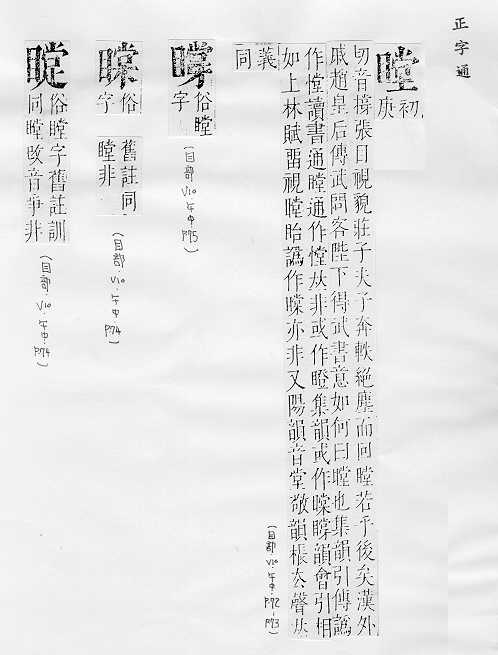 正字通
瞠
初庚
切音撐張目視貌莊子夫子奔軼絕塵而回瞠若乎後矣漢外
戚趙皇后傳武問客陛下得武書意如何曰瞠也集韻引傳譌
作憆讀書通瞠通作憆𠀤非或作瞪集韻或作韻會引相
如上林賦畱視瞠眙譌作亦非又陽韻音堂敬韻棖去聲𠀤
義
同
(目部·V10·午中·P.72-P.73)
俗瞠
字
(目部·V10·午中·P.75)
俗
字
舊註同
瞠非
(目部·V.10·午中·P.74)
俗瞠字舊註訓
同瞠改音爭非
(目部·V.10·午中·P.74)